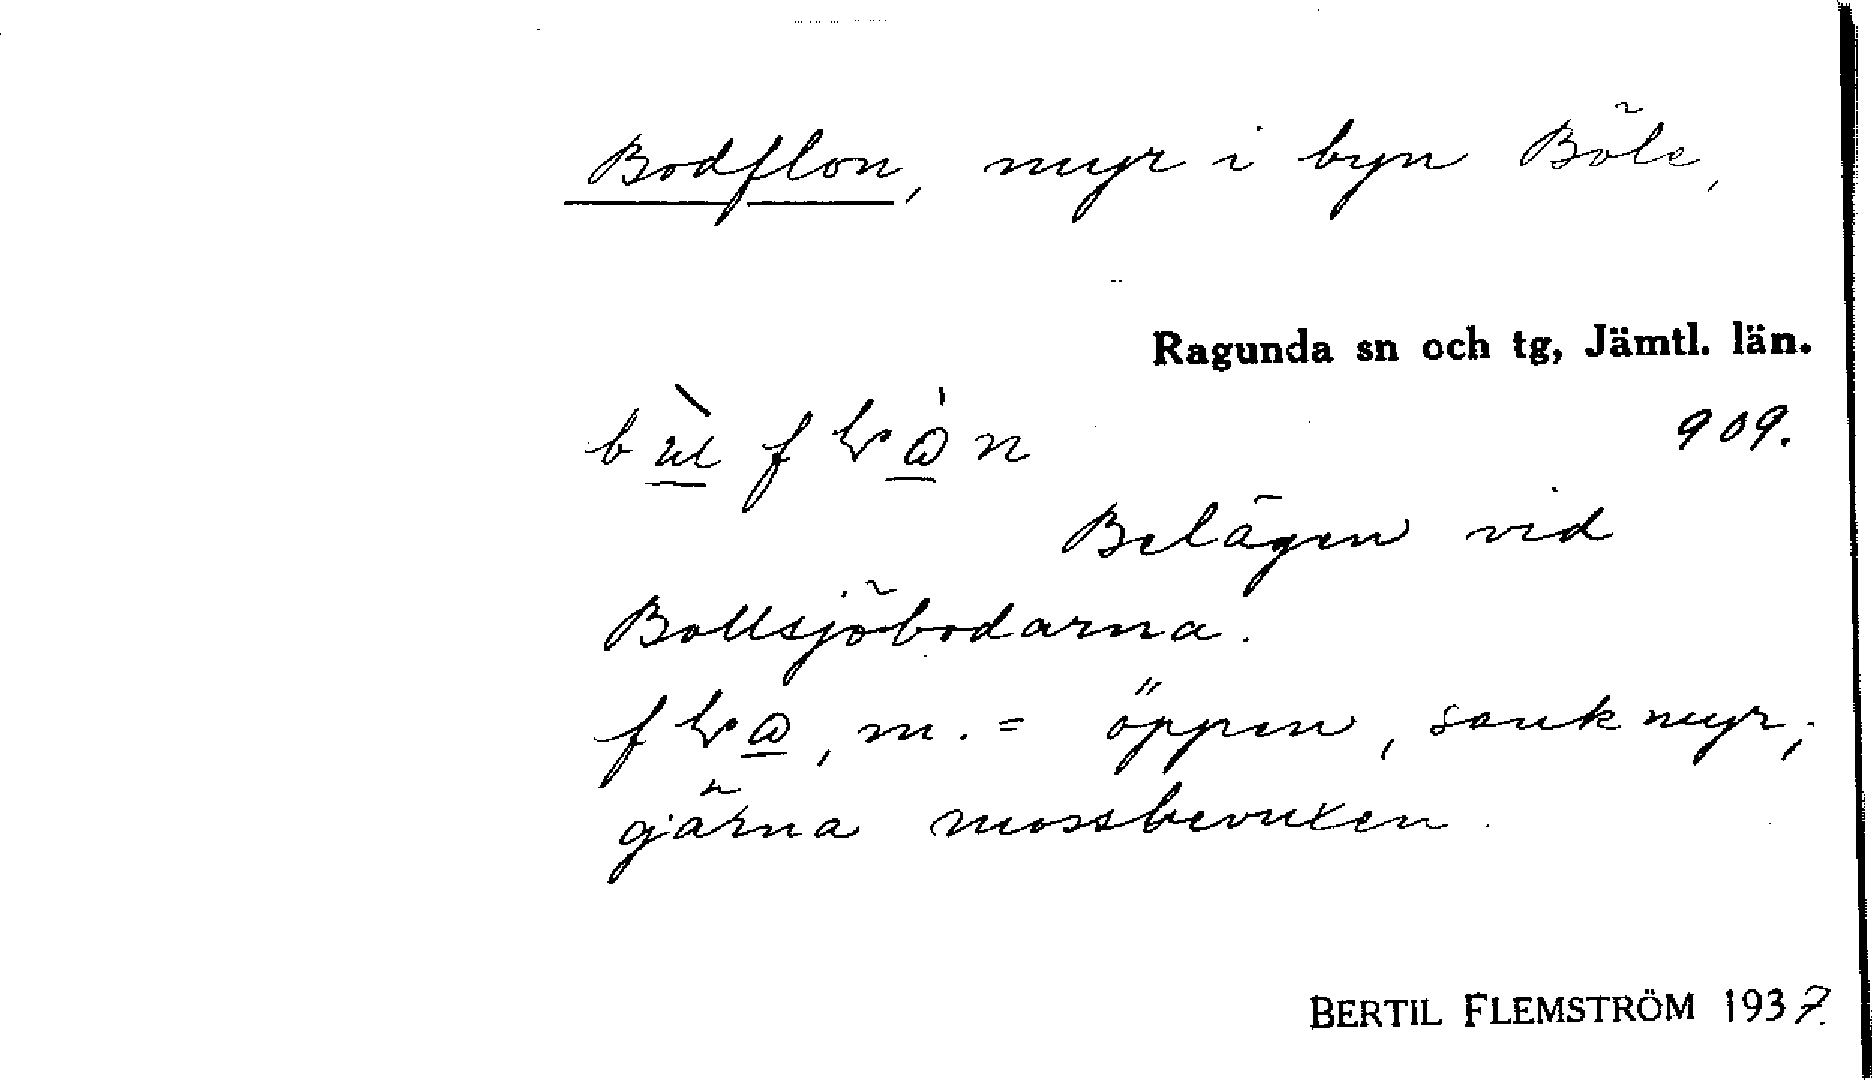 Bodflon, myr i byn Böle,
Ragunda sn och tg, Jämtl. län.
909.
Belägen vid
Bollsjöbodarna.
m. = öppen, sank myr;
gärna mossbevuxen.
BERTIL FLEMSTRÖM 1937.